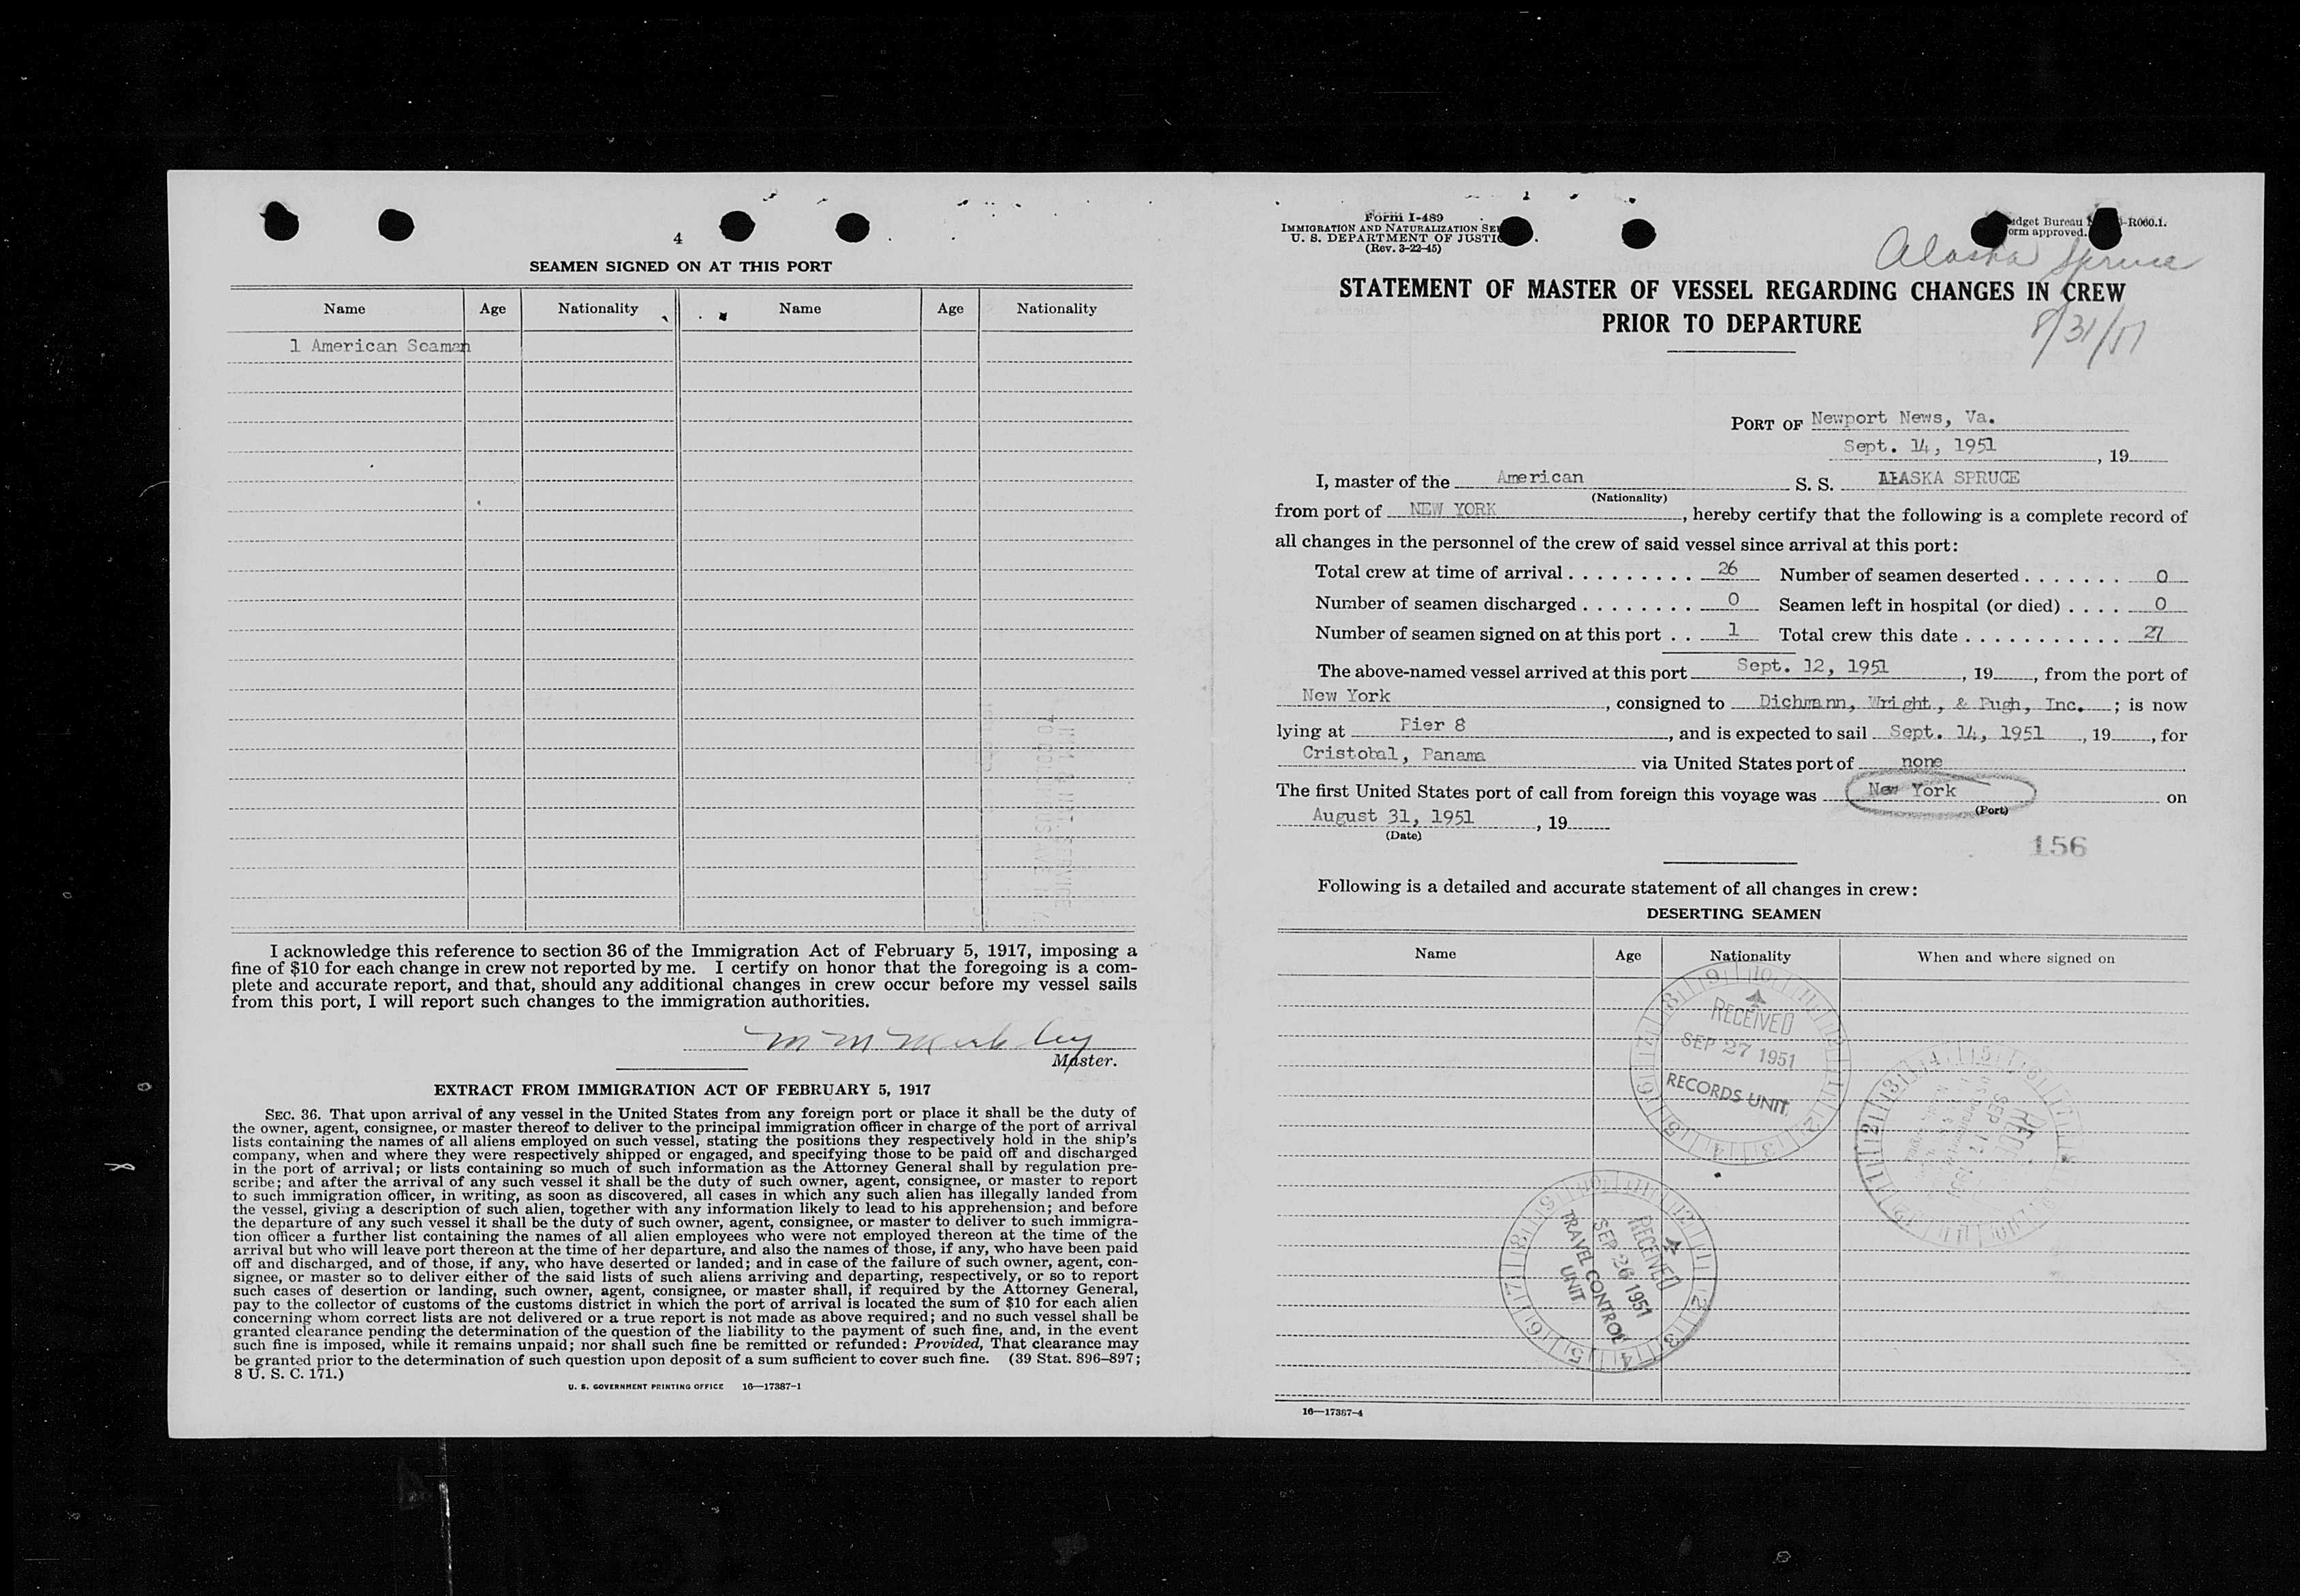 4
SEAMEN SIGNED ON AT THIS PORT
Name Age Nationality Name Age Nationality
1 American Seaman
I acknowledge this reference to section 36 of the Immigration Act of February 5, 1917, imposing a
fine of $10 for each change in crew not reported by me. I certify on honor that the foregoing is a com-
plete and accurate report, and that, should any additional changes in crew occur before my vessel sails
from this port, I will report such changes to the immigration authorities.
M M
Master.
EXTRACT FROM IMMIGRATION ACT OF FEBRUARY 5, 1917
SEC. 36. That upon arrival of any vessel in the United States from any foreign port or place it shall be the duty of
the owner, agent, consignee, or master thereof to deliver to the principal immigration officer in charge of the port of arrival
lists containing the names of all aliens employed on such vessel, stating the positions they respectively hold in the ship's
company, when and where they were respectively shipped or engaged, and specifying those to be paid off and discharged
in the port of arrival; or lists containing so much of such information as the Attorney General shall by regulation pre-
scribe; and after the arrival of any such vessel it shall be the duty of such owner, agent, consignee, or master to report
to such immigration officer, in writing, as soon as discovered, all cases in which any such alien has illegally landed from
the vessel, giving a description of such alien, together with any information likely to lead to his apprehension; and before
the departure of any such vessel it shall be the duty of such owner, agent, consignee, or master to deliver to such immigra-
tion officer a further list containing the names of all alien employees who were not employed thereon at the time of the
arrival but who will leave port thereon at the time of her departure, and also the names of those, if any, who have been paid
off and discharged, and of those, if any, who have deserted or landed; and in case of the failure of such owner, agent, con-
signee, or master so to deliver either of the said lists of such aliens arriving and departing, respectively, or so to report
such cases of desertion or landing, such owner, agent, consignee, or master shall, if required by the Attorney General,
pay to the collector of customs of the customs district in which the port of arrival is located the sum of $10 for each alien
concerning whom correct lists are not delivered or a true report is not made as above required; and no such vessel shall be
granted clearance pending the determination of the question of the liability to the payment of such fine, and, in the event
such fine is imposed, while it remains unpaid; nor shall such fine be remitted or refunded: Provided, That clearance may
be granted prior to the determination of such question upon deposit of a sum sufficient to cover such fine. (39 Stat. 896–897;
8 U. S. C. 171.)
U. S. GOVERNMENT PRINTING OFFICE 16—17387-1
Form I-489
IMMIGRATION AND NATURALIZATION SE
U. S. DEPARTMENT OF JUSTIC
(Rev. 3-22-45)
dget Bureau -R060.1.
orm approved.
Alaska Spruce
8/31/51
STATEMENT OF MASTER OF VESSEL REGARDING CHANGES IN CREW
PRIOR TO DEPARTURE
PORT OF Newport News, Va.
Sept. 14, 1951, 19
I, master of the American S. S. ALASKA SPRUCE
(Nationality)
from port of NEW YORK, hereby certify that the following is a complete record of
all changes in the personnel of the crew of said vessel since arrival at this port:
Total crew at time of arrival . . . . . . . . . 26 Number of seamen deserted . . . . . . . 0
Number of seamen discharged . . . . . . . . 0 Seamen left in hospital (or died) . . . . 0
Number of seamen signed on at this port . . 1 Total crew this date . . . . . . . . . . . 27
The above-named vessel arrived at this port Sept. 12, 1951, 19, from the port of
New York, consigned to Dichmann, Wright, & Pugh, Inc. ; is now
lying at Pier 8, and is expected to sail Sept. 14, 1951, 19, for
Cristobal, Panama via United States port of none
The first United States port of call from foreign this voyage was New York on
(Port)
August 31, 1951, 19
(Date)
156
Following is a detailed and accurate statement of all changes in crew:
DESERTING SEAMEN
Name Age Nationality When and where signed on
RECEIVED
SEP 27 1951
RECORDS UNIT
SEP 17 1951
RECEIVED
SEP 26 1951
TRAVEL CONTROL
UNIT
16—17387-4